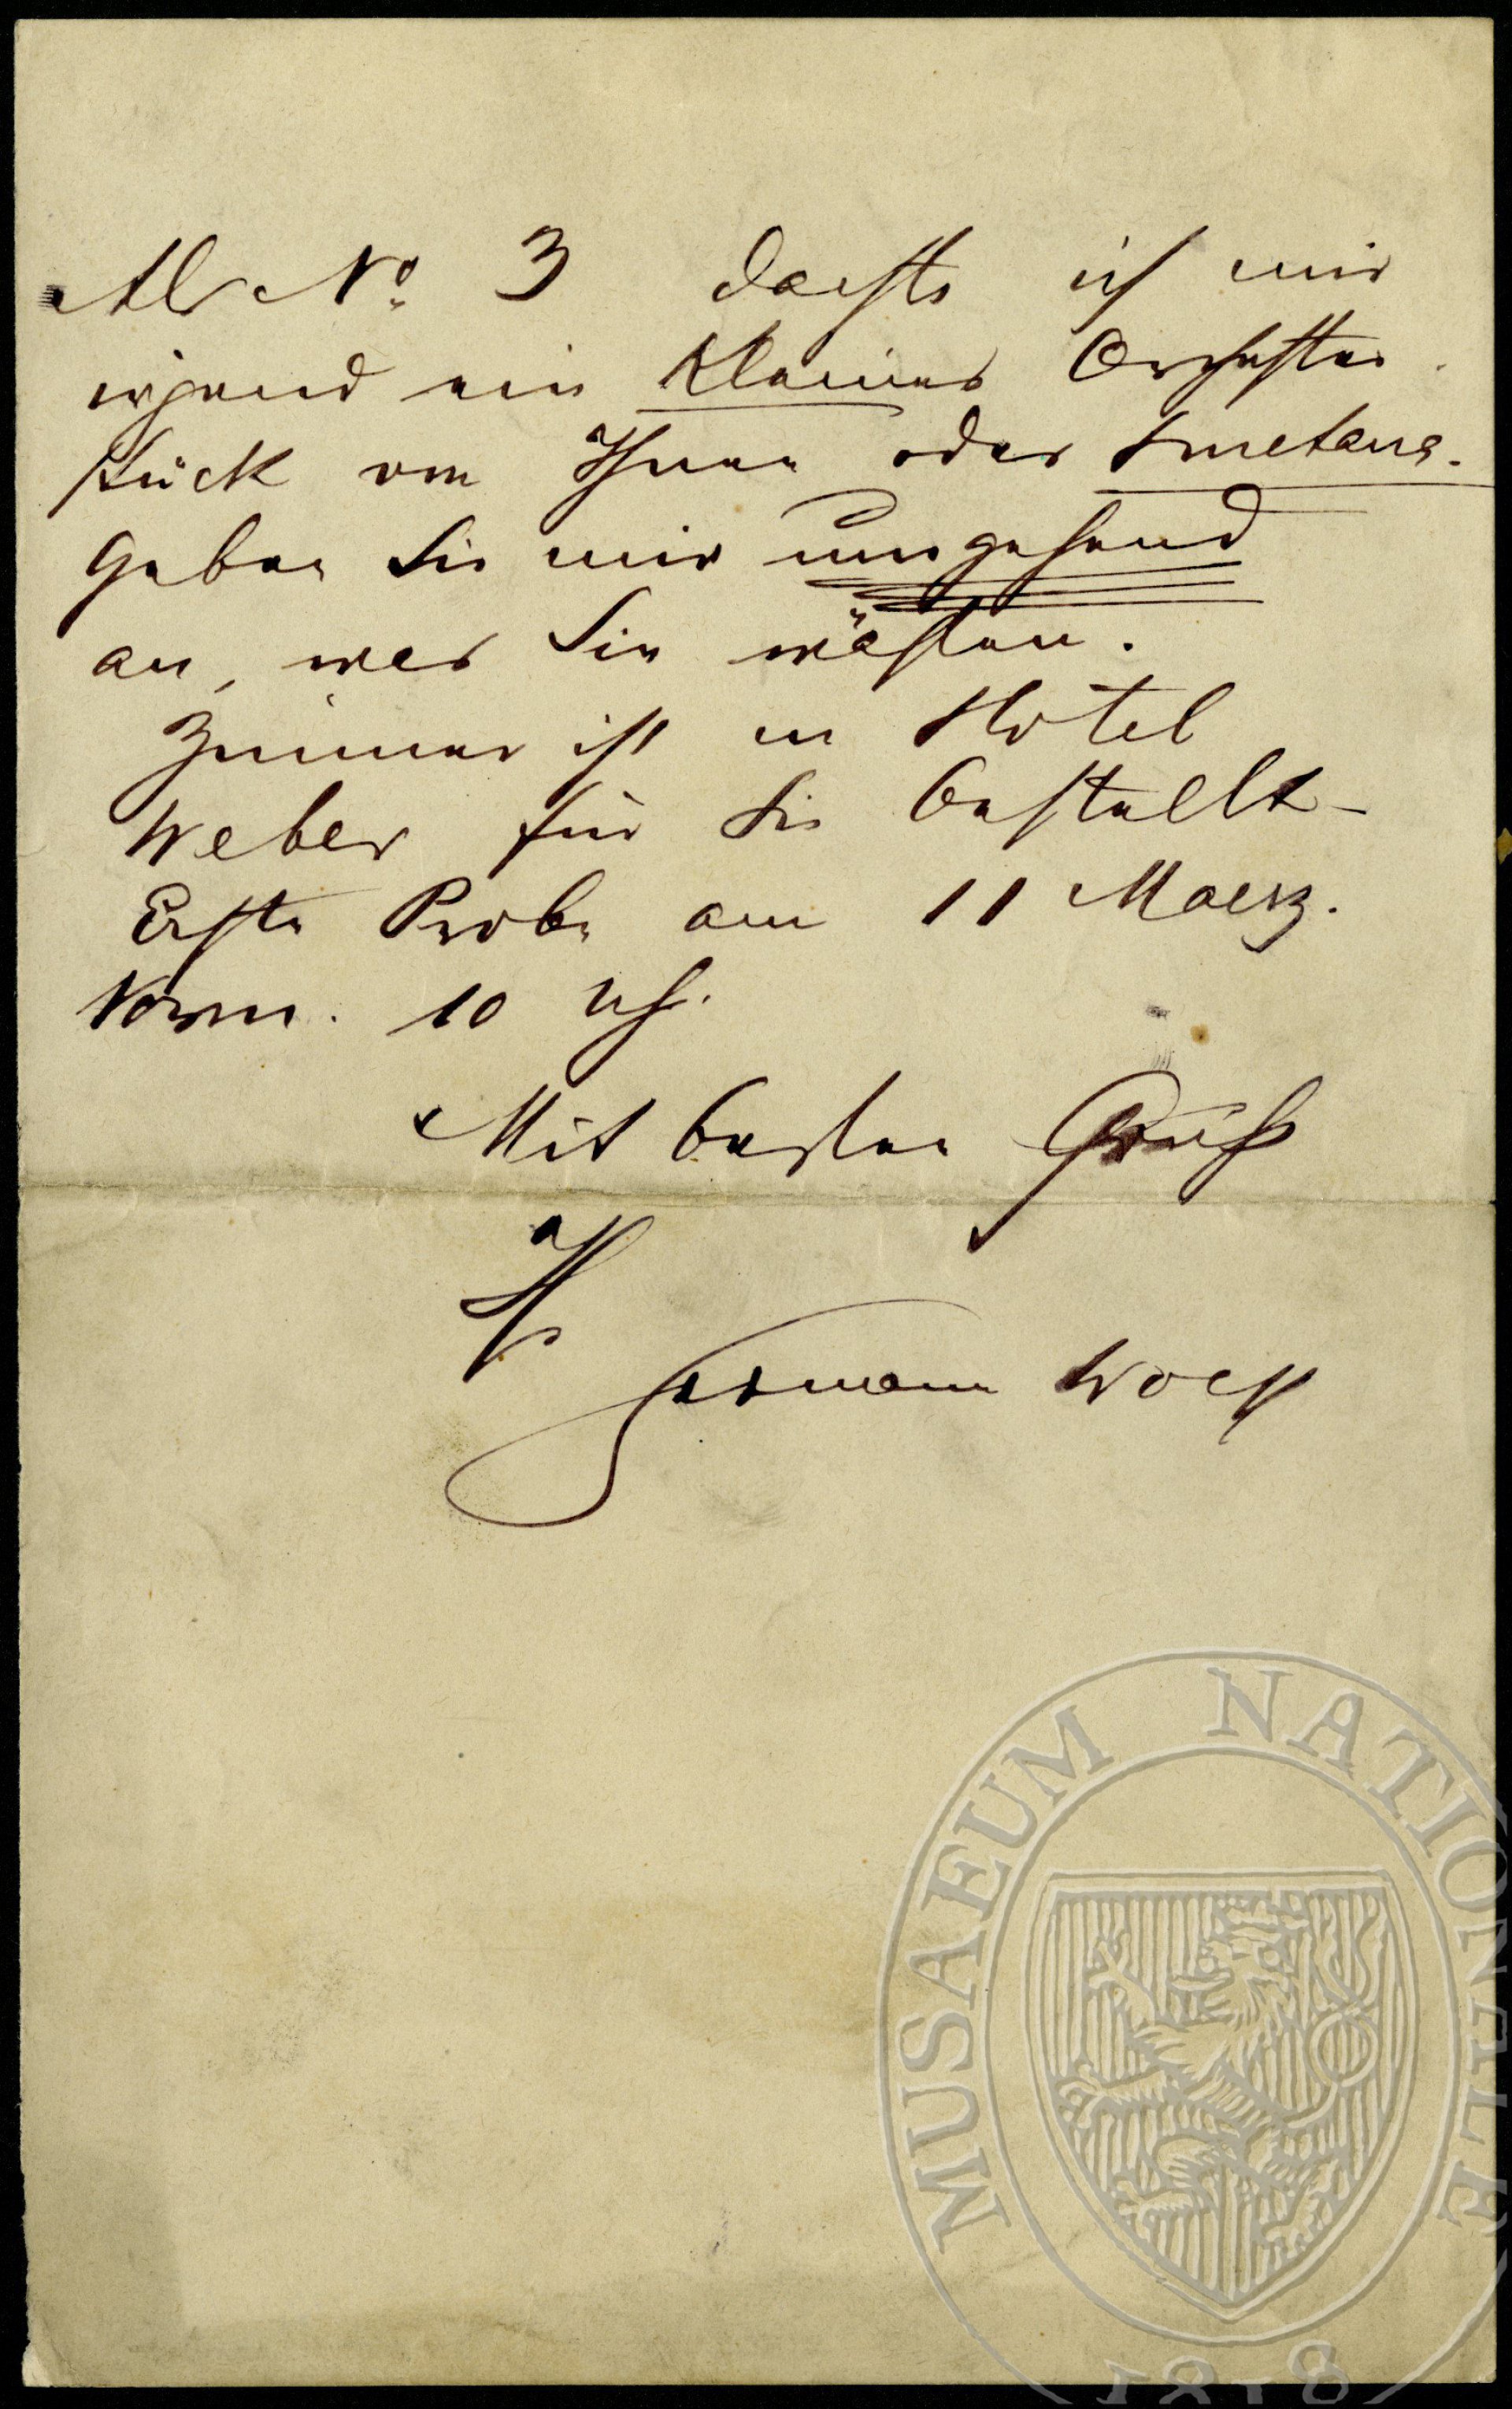 Als No. 3 dachte ich mir
irgend ein kleines Orchester
stück von Ihnen oder Smetana.
Geben Sie mir umgehend
an, was Sie wählen.
Zimmer ist in Hotel
Weber für Sie bestellt –
Erste Probe am 11 Maerz.
Vorm. 10 Uh.
Mit besten Gruß
Ihr
Hermann Wolff
MUSAEUM NATIONALE
1818